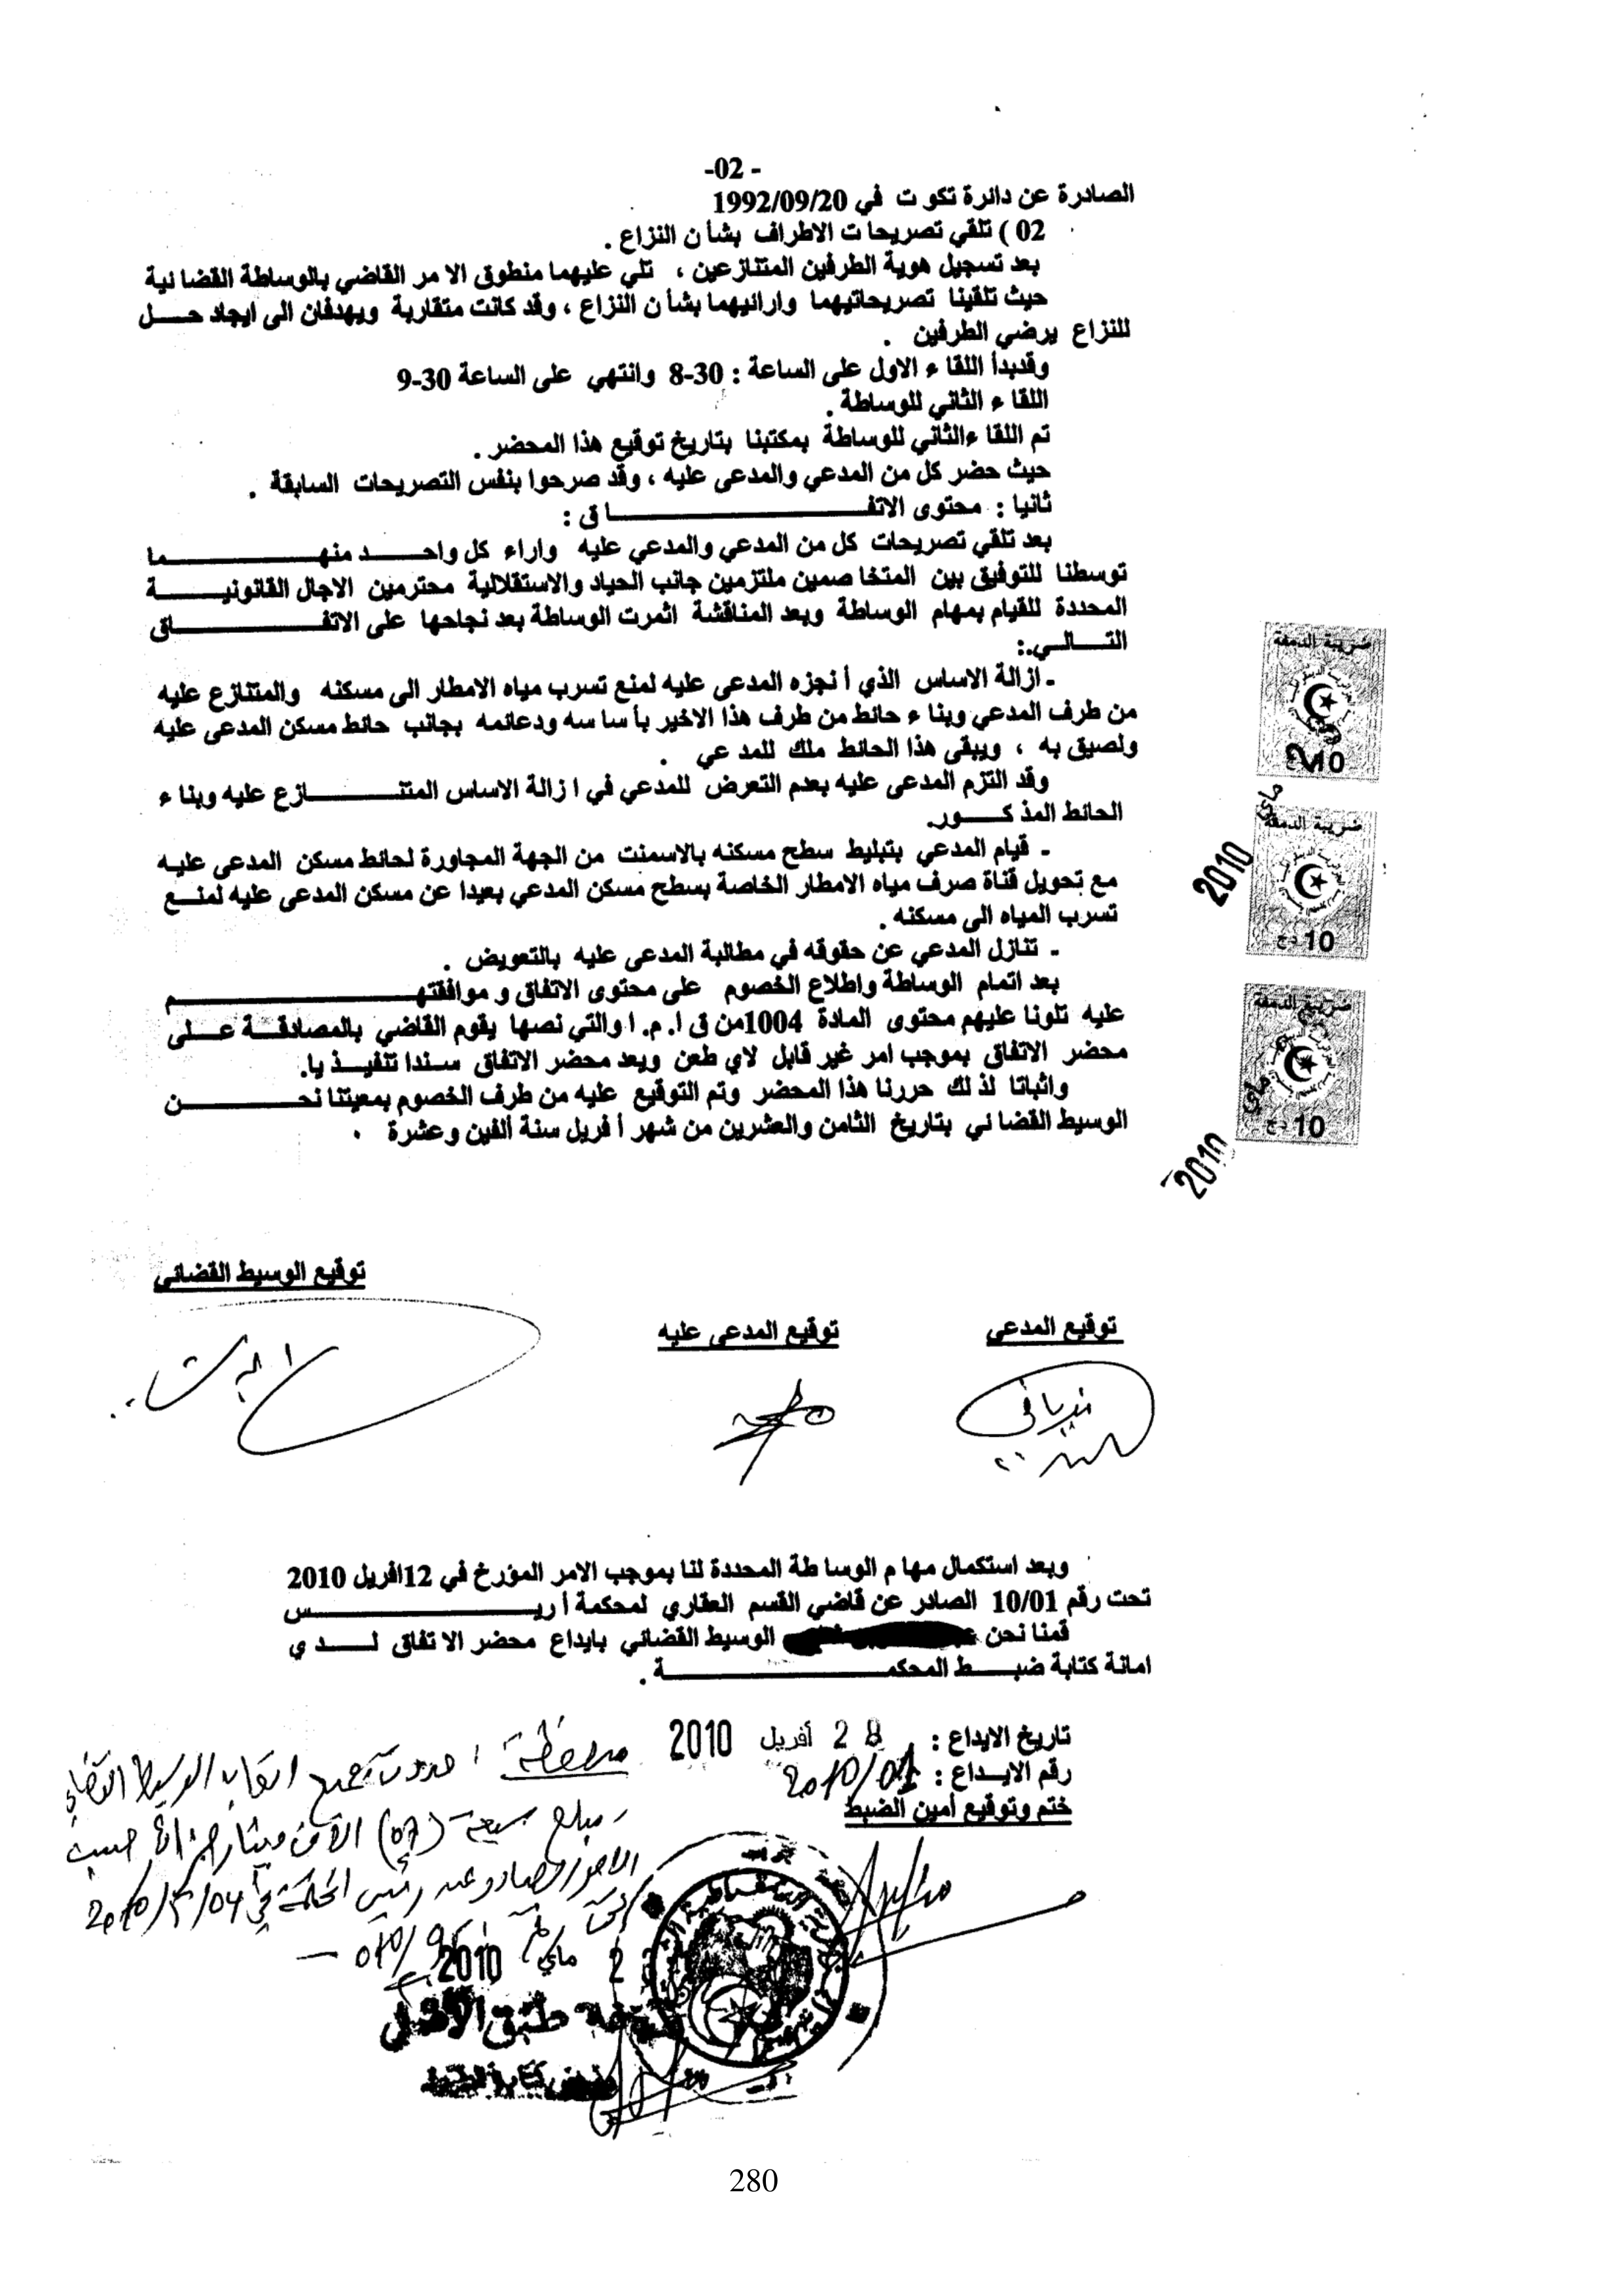 -02 -
الصادرة عن دائرة تكوت في 1992/09/20
02 ) تلقي تصريحات الاطراف بشأن النزاع .
بعد تسجيل هوية الطرفين المتنازعين ، تلي عليهما منطوق الامر القاضي بالوساطة القضائية
حيث تلقينا تصريحاتيهما وارائيهما بشأن النزاع ، وقد كانت متقاربة ويهدفان الى ايجاد حـــل
للنزاع يرضي الطرفين .
وقدبدأ اللقاء الاول على الساعة : 30-8 وانتهي على الساعة 30-9
اللقاء الثاني للوساطة .
تم اللقاءالثاني للوساطة بمكتبنا بتاريخ توقيع هذا المحضر .
حيث حضر كل من المدعي والمدعى عليه ، وقد صرحوا بنفس التصريحات السابقة .
ثانيا : محتوى الاتفـــــــــاق :
بعد تلقي تصريحات كل من المدعي والمدعي عليه واراء كل واحـــد منهـــــــما
توسطنا للتوفيق بين المتخاصمين ملتزمين جانب الحياد والاستقلالية محترمين الاجال القانونيـــــة
المحددة للقيام بمهام الوساطة وبعد المناقشة اثمرت الوساطة بعد نجاحها على الاتفـــــــاق
التـــالـــي.:
- ازالة الاساس الذي أنجزه المدعى عليه لمنع تسرب مياه الامطار الى مسكنه والمتنازع عليه
من طرف المدعي وبناء حائط من طرف هذا الاخير بأساسه ودعائمه بجانب حائط مسكن المدعى عليه
ولصيق به ، ويبقى هذا الحائط ملك للمدعي .
وقد التزم المدعى عليه بعدم التعرض للمدعي في ازالة الاساس المتنـــــازع عليه وبناء
الحائط المذكـــور.
- قيام المدعي بتبليط سطح مسكنه بالاسمنت من الجهة المجاورة لحائط مسكن المدعى عليه
مع تحويل قناة صرف مياه الامطار الخاصة بسطح مسكن المدعي بعيدا عن مسكن المدعى عليه لمنـــع
تسرب المياه الى مسكنه .
- تنازل المدعي عن حقوقه في مطالبة المدعى عليه بالتعويض .
بعد اتمام الوساطة واطلاع الخصوم على محتوى الاتفاق و موافقتهـــــــــم
عليه تلونا عليهم محتوى المادة 1004من ق ا. م. ا والتي نصها يقوم القاضي بالمصادقـــة علــى
محضر الاتفاق بموجب امر غير قابل لاي طعن ويعد محضر الاتفاق سندا تنفيـــذيا.
واثباتا لذلك حررنا هذا المحضر وتم التوقيع عليه من طرف الخصوم بمعيتنا نحـــــن
الوسيط القضائي بتاريخ الثامن والعشرين من شهر أفريل سنة ألفين وعشرة .
ضريبة الدمغة
10
ماي 2010
ضريبة الدمغة
10 دج
ضريبة الدمغة
10 دج
ماي 2010
توقيع الوسيط القضائي
توقيع المدعي
توقيع المدعى عليه
وبعد استكمال مهام الوساطة المحددة لنا بموجب الامر المؤرخ في 12افريل 2010
تحت رقم 10/01 الصادر عن قاضي القسم العقاري لمحكمة أريــــــــس
قمنا نحن الوسيط القضائي بايداع محضر الاتفاق لـــدي
امانة كتابة ضبـــط المحكمـــــــــة .
تاريخ الايداع : 28 أفريل 2010
رقم الايــداع : 2010/01
ختم وتوقيع أمين الضبط
ملاحظة : حددت جميع اتعاب الوسيط القضائي
بمبلغ سبعة (07) الاف دينار جزائري حسب
الامر الصادر عن رئيس المحكمة في
تحت رقم
ماي 2010
طبق الأصل
280